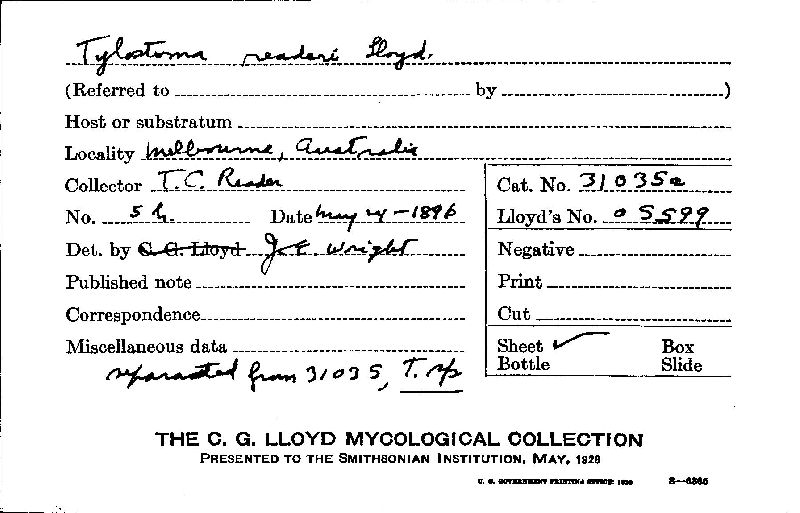 Tylostoma readeri Lloyd.
(Referred to by )
Host or substratum
Locality Melbourne, Australia
Collector T.C. Reader
Cat. No. 31035a
No. 5 h. Date May 24-1896
Lloyd's No. 05599
Det. by C. G. Lloyd J. E. Wright
Negative
Published note
Print
Correspondence
Cut
Miscellaneous data
Sheet ✓ Box
Bottle Slide
separated from 31035, T. sp
THE C. G. LLOYD MYCOLOGICAL COLLECTION
PRESENTED TO THE SMITHSONIAN INSTITUTION, MAY, 1928
U. S. GOVERNMENT PRINTING OFFICE